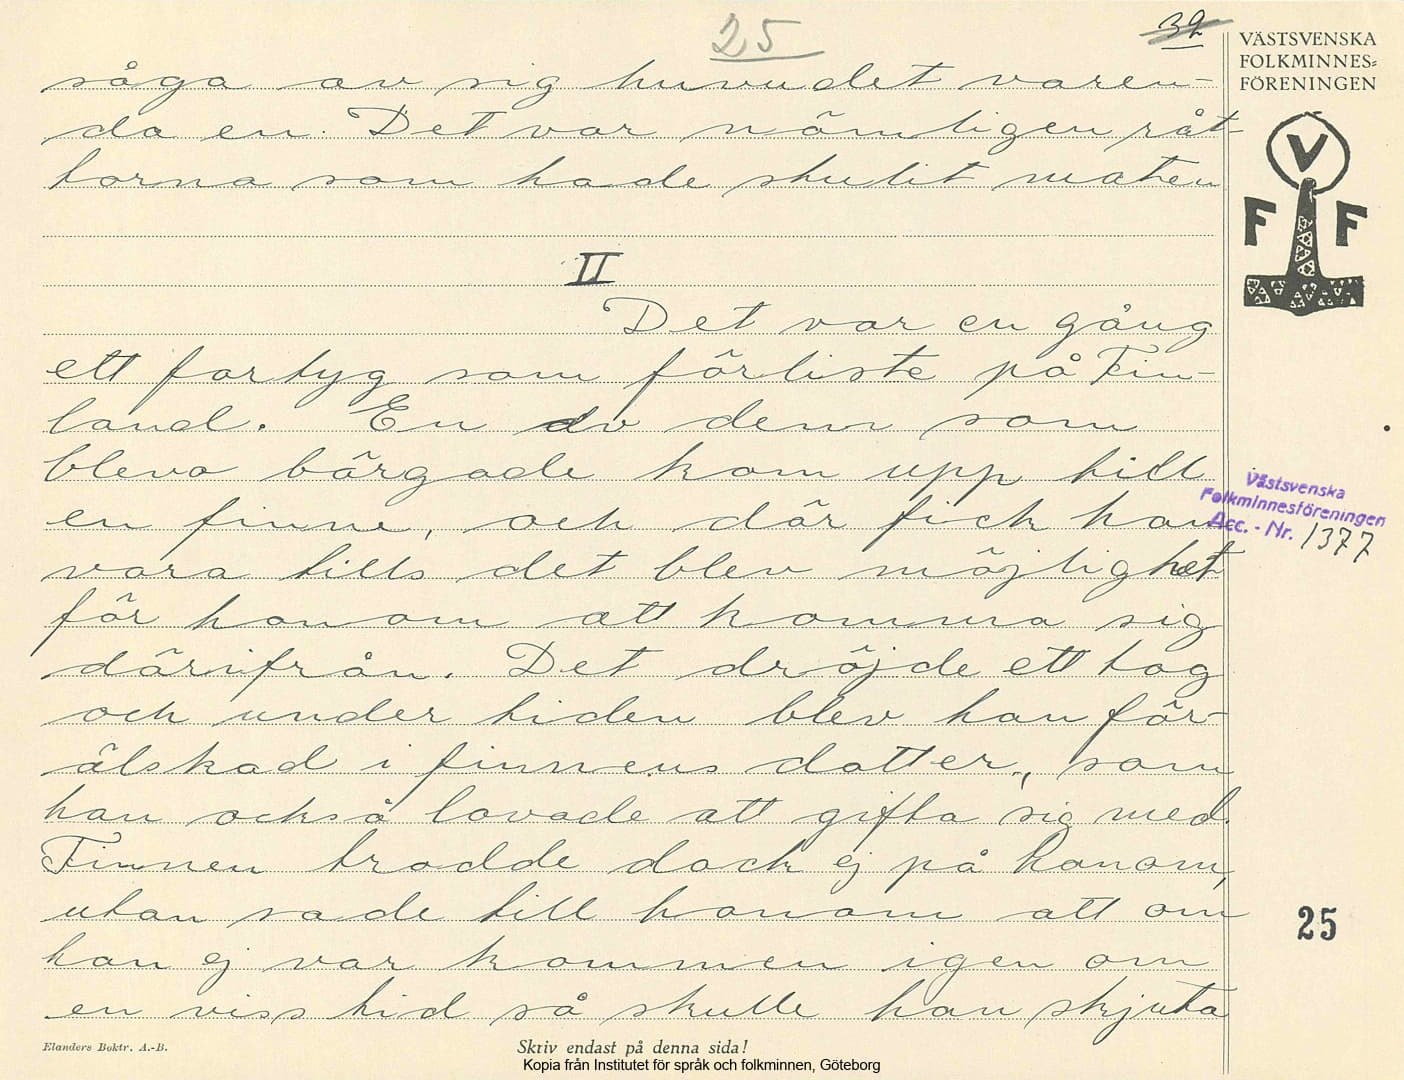 25
32
VÄSTSVENSKA
FOLKMINNES=
FÖRENINGEN
såga av sig huvudet varen-
da en. Det var nämligen råt-
torna som hade stulit maten
V
F F
II
Det var en gång
ett fartyg som förliste på Fin-
land. En av dem som
blevo bärgade kom upp till
en finne, och där fick han
vara tills det blev möjlighet
för honom att komma sig
därifrån. Det dröjde ett tag
och under tiden blev han för-
älskad i finnens dotter, som
han också lovade att gifta sig med.
Finnen trodde dock ej på honom,
utan sade till honom att om
han ej var kommen igen om
en viss tid så skulle han skjuta
Västsvenska
Folkminnesföreningen
Acc. - Nr. 1377
25
Elanders Boktr. A.-B.
Skriv endast på denna sida!
Kopia från Institutet för språk och folkminnen, Göteborg